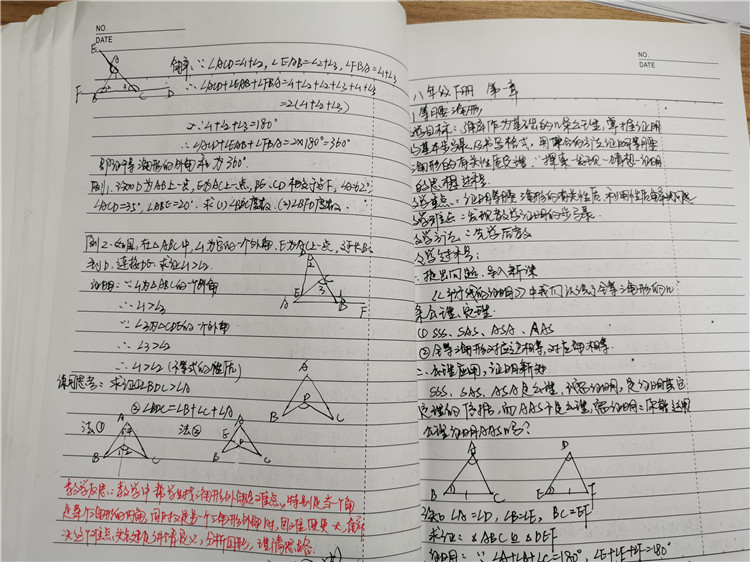 NO.
DATE
解: ∵∠ACD=∠1+∠2, ∠EAB=∠2+∠3, ∠FBA=∠1+∠3
∴∠ACD+∠EAB+∠FBA=∠1+∠2+∠2+∠3+∠1+∠3
=2(∠1+∠2+∠3)
又∵∠1+∠2+∠3=180°
∴∠ACD+∠EAB+∠FBA=2×180°=360°
三角形的外角和为360°
例1、 D为AB上一点, E为AC上一点, BE、CD相交于点F, ∠A=62°
∠ACD=35°, ∠ABE=20°. 求(1)∠BDC度数. (2)∠BFD度数.
例2: 如图, 在△ABC中, ∠1为它的一个外角, E为AC上一点, 延长BC
到D, 连接DE. 求证∠1>∠2
证明: ∵∠1为△ABC的一个外角
∴∠1>∠3
∵∠3为△CDE的一个外角
∴∠3>∠2
∴∠1>∠2 (不等式的性质)
练习思考: ①求证∠BDC>∠A
②∠BDC=∠B+∠C+∠A
法① 法②
教学反思: 教学中 三角形外角是难点, 特别是当一个角
是某个三角形的内角, 同时又是另一个三角形外角时, 困难更大, 解
决这个难点关键是讲清定义, 分析图形, 理清思路.
NO.
DATE
八年级下册 第一章
1 等腰三角形
学目标: 了解作为基础的几条公理, 掌握证明
的基本步骤及书写格式, 用综合的方法证明等腰
三角形的有关性质定理. 探索—发现—猜想—证明
的思想过程
教学重点: 证明等腰三角形的有关性质, 利用性质解决问题
教学难点: 发现 证明的步骤.
教学方法: 先学后教
教学过程:
一. 提出问题, 导入新课
《平行线的证明》中我们 全等三角形的几
条公理、定理.
① SSS、SAS、ASA、AAS
②全等三角形对应边相等, 对应角相等
二. 公理应用, 证明新知
SSS, SAS, ASA是公理, 证明, 是证明其它
定理的依据, 而AAS不是公理, 需证明: 你能运用
公理证明AAS吗?
已知∠A=∠D, ∠B=∠E, BC=EF
求证: △ABC≌△DEF
证明: ∵∠A+∠B+∠C=180°, ∠D+∠E+∠F=180°